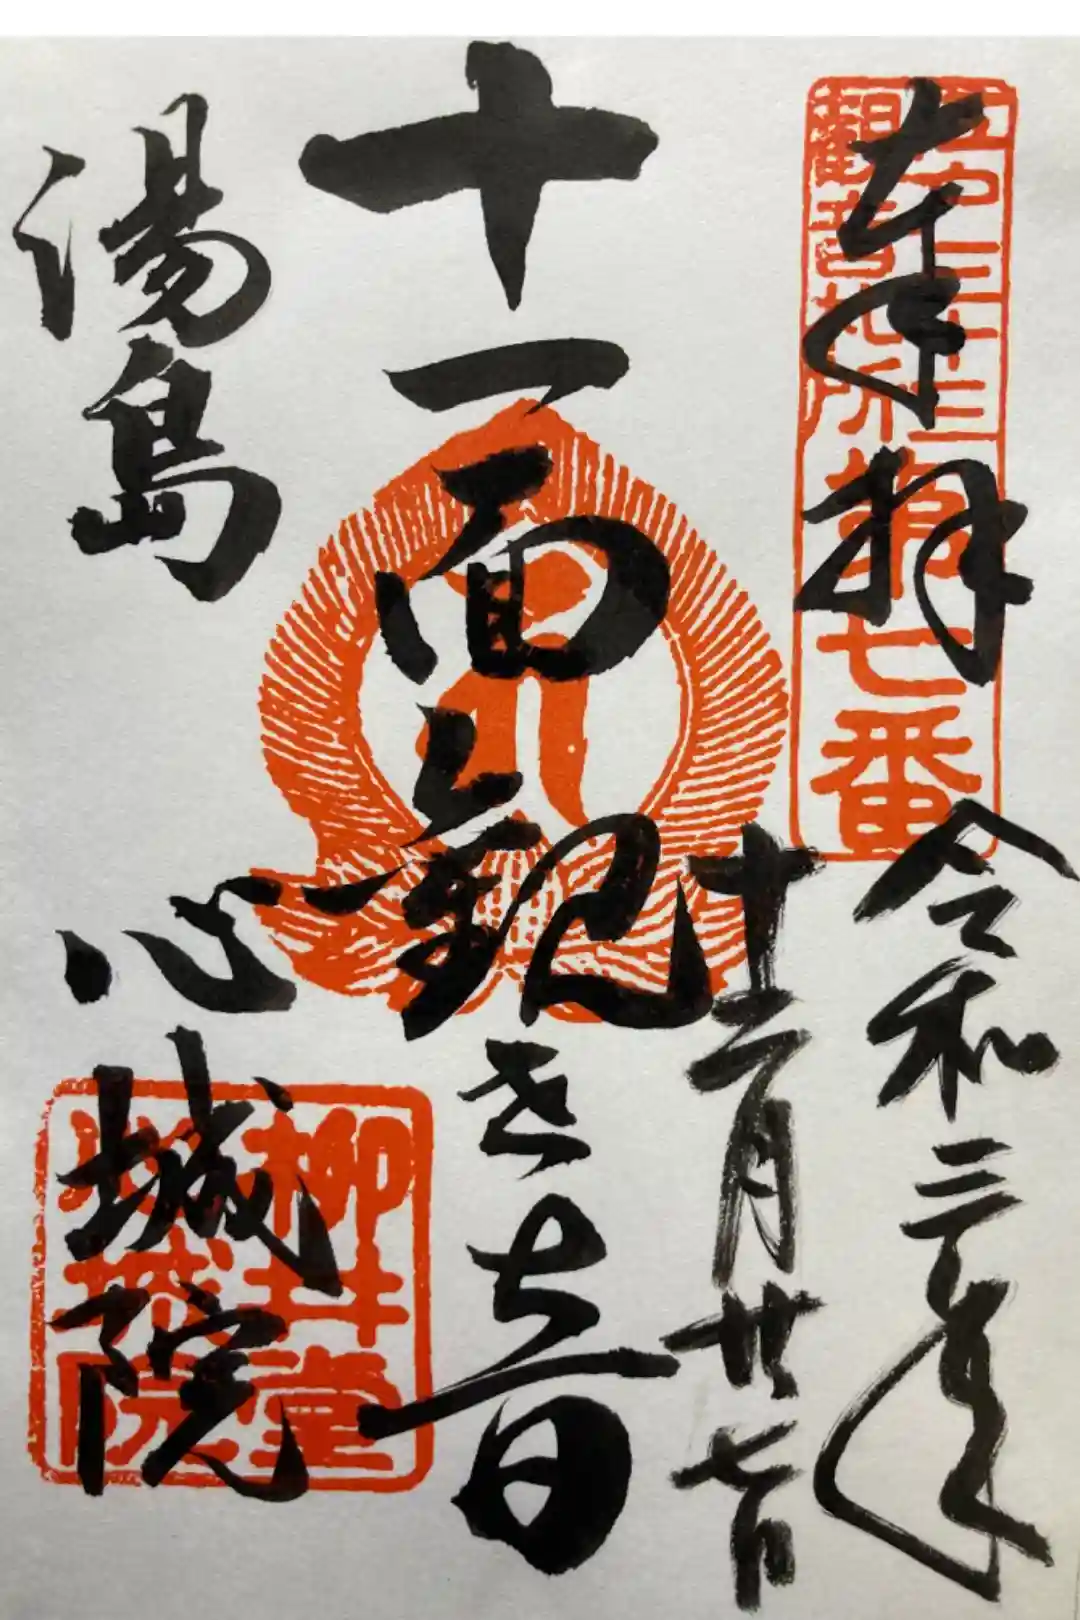 奉拝
令和三年
十二月廿七日
十一面観世音
湯島
心城院
江戸三十三
観音札所
第七番
柳井堂
心城院